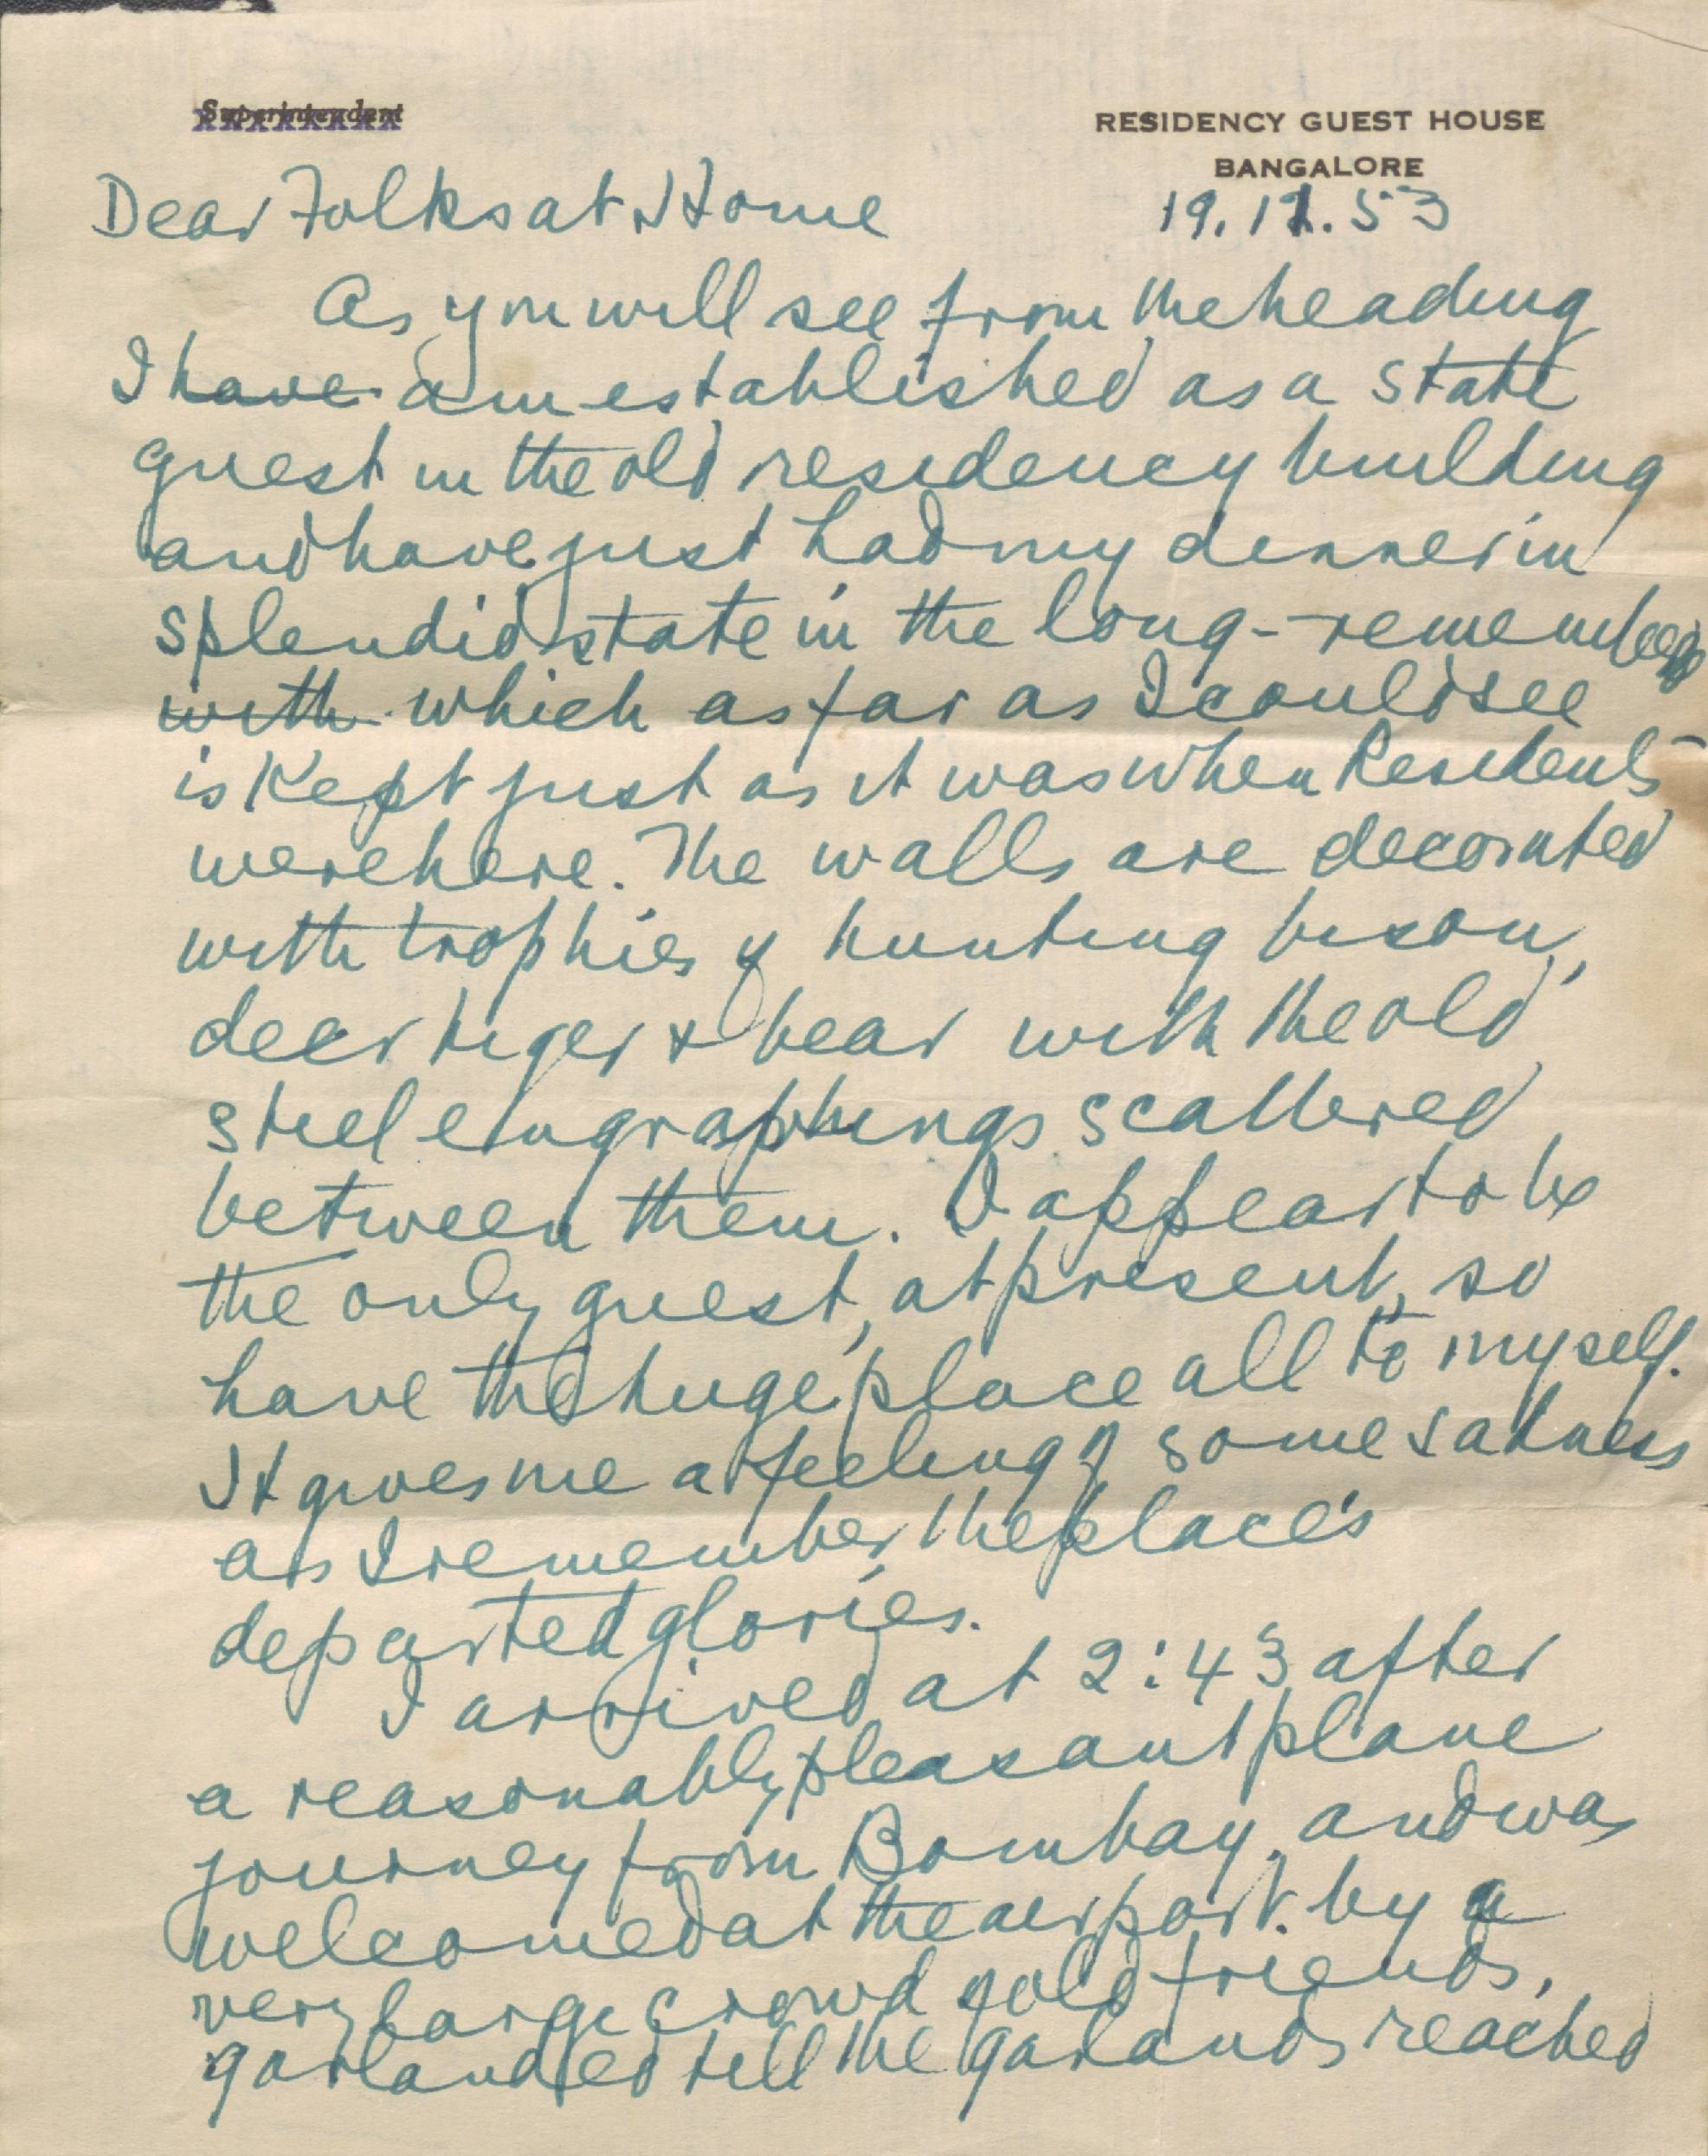 Superintendent
RESIDENCY GUEST HOUSE
BANGALORE
19.11.53
Dear Folks at Home
As you will see from the heading
I have am established as a state
guest in the old residency building
and have just had my dinner in
splendid state in the long-remembered
with which as far as I could see
is kept just as it was when Residents
were here. The walls are decorated
with trophies of hunting bison,
deer tiger & bear with the old
steel engraphings scattered
between them. I appear to be
the only guest, at present, so
have this huge place all to myself.
It gives me a feeling of some sadness
as I remember the place's
departed glories.
I arrived at 2:43 after
a reasonably pleasant plane
journey from Bombay, and was
welcomed at the airport by a
very large crowd of old friends,
garlanded till the garlands reached